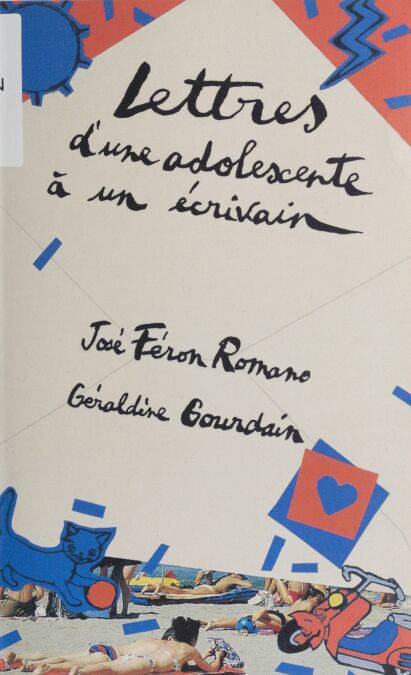 Lettres
d'une adolescente
à un écrivain
José Féron Romano
Géraldine Gourdain
N